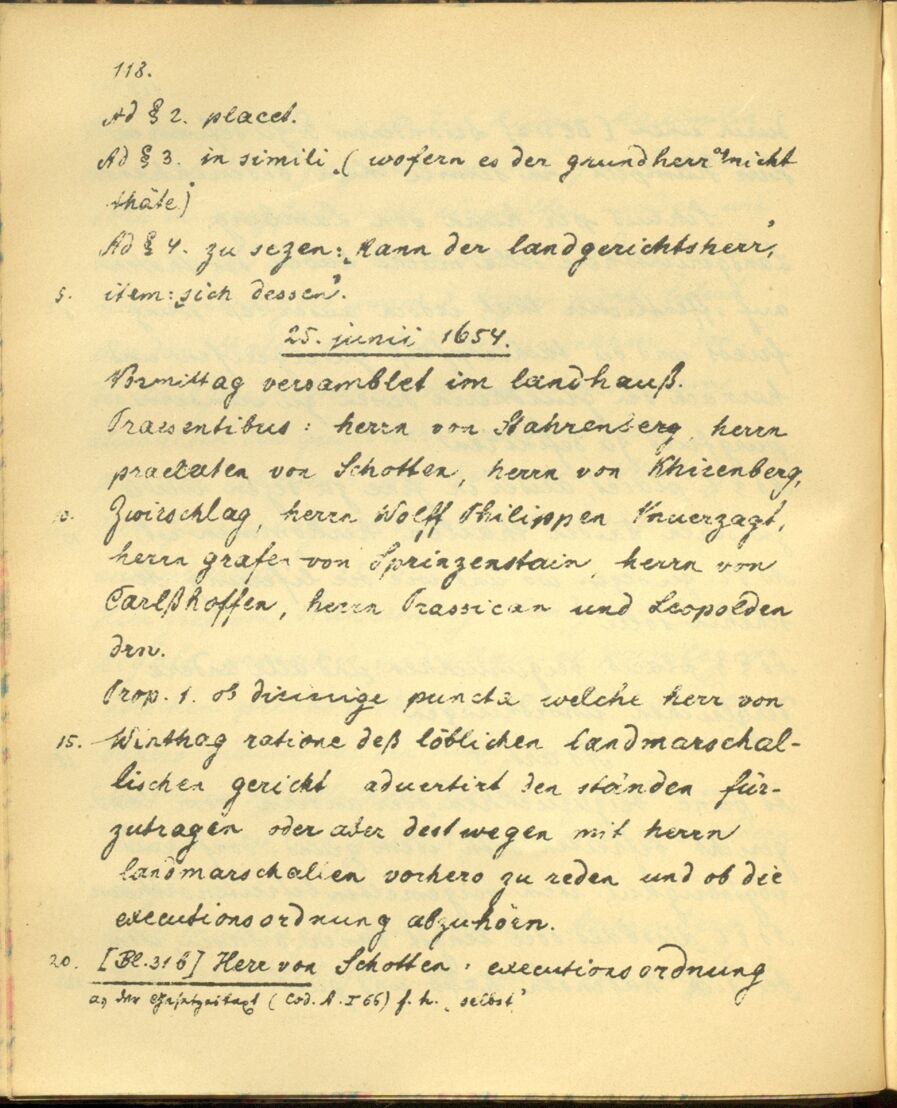 118.
Ad § 2. placet.
Ad § 3. in simili „(wofern es der grundherr a) nicht
thäte)“
Ad § 4. zu sezen: „kann der landgerichtsherr“,
5. item: „sich dessen“.
25. junii 1654.
Vormittag versamblet im landhauß.
Praesentibus: herrn von Stahrenberg, herrn
praelaten von Schotten, herrn von Khirenberg,
10. Zwirschlag, herrn Wolff Philippen Unverzagt,
herrn grafen von Sprinzenstain, herrn von
Carlßhoffen, herrn Prassican und Leopolden
drn.
Prop. 1. ob diejenige puncta welche herr von
15. Winthag ratione deß löblichen landmarschal-
lischen gericht advertirt den ständen für-
zutragen oder aber destwegen mit herrn
landmarschallen vorhero zu reden und ob die
executionsordnung abzuhörn.
20. [Bl. 316] Herr von Schotten: executionsordnung
a) der Gesetzestext (Cod. A. I 66) f. h. „selbst“